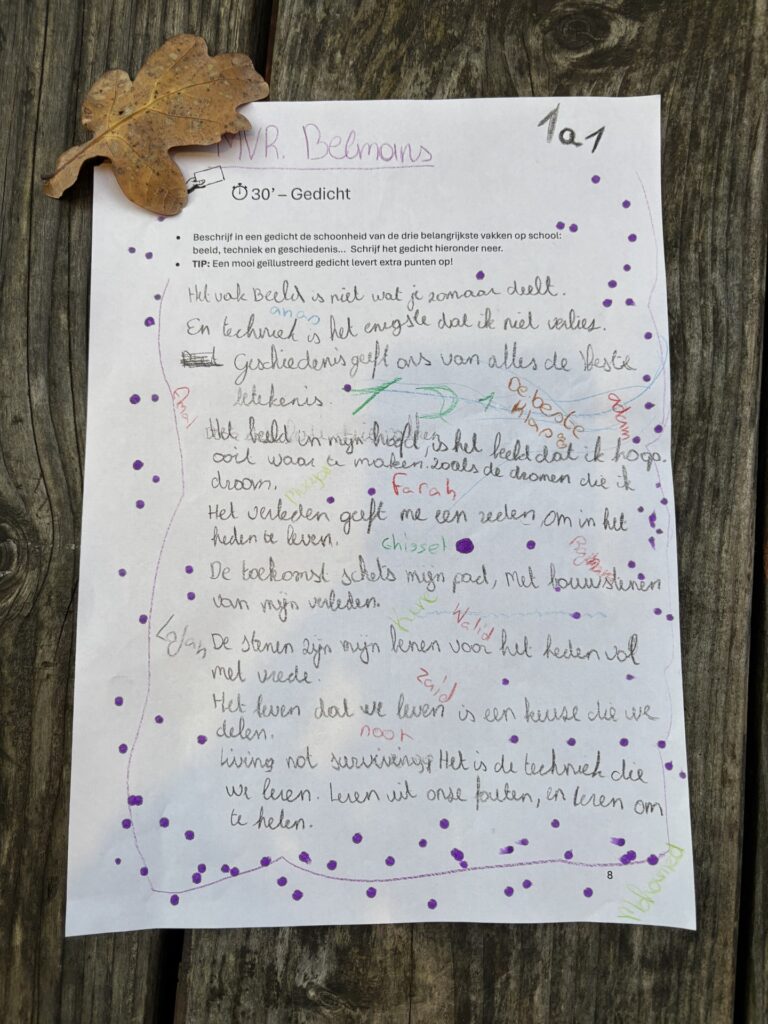 1a1
MVR. Belmans
30' – Gedicht
• Beschrijf in een gedicht de schoonheid van de drie belangrijkste vakken op school:
beeld, techniek en geschiedenis... Schrijf het gedicht hieronder neer.
• TIP: Een mooi geïllustreerd gedicht levert extra punten op!
Het vak Beeld is niet wat je zomaar deelt.
anas
En techniek is het enigste dat ik niet verlies.
Geschiedenis geeft ons van alles de beste
betekenis.
1
De beste
klas
adam
Het beeld in mijn hoofd, is het beeld dat ik hoop
ooit waar te maken. zoals de dromen die ik
droom.
Farah
Het verleden geeft me een reden om in het
heden te leven.
Chissel
De toekomst schets mijn pad, met bouwstenen
van mijn verleden.
Walid
De stenen zijn mijn benen voor het heden vol
met vrede.
zaid
Het leven dat we leven is een keuse die we
delen.
noor
Living not surviving, Het is de techniek die
we leren. Leren uit onze fouten, en leren om
te helen.
8
Mohamed